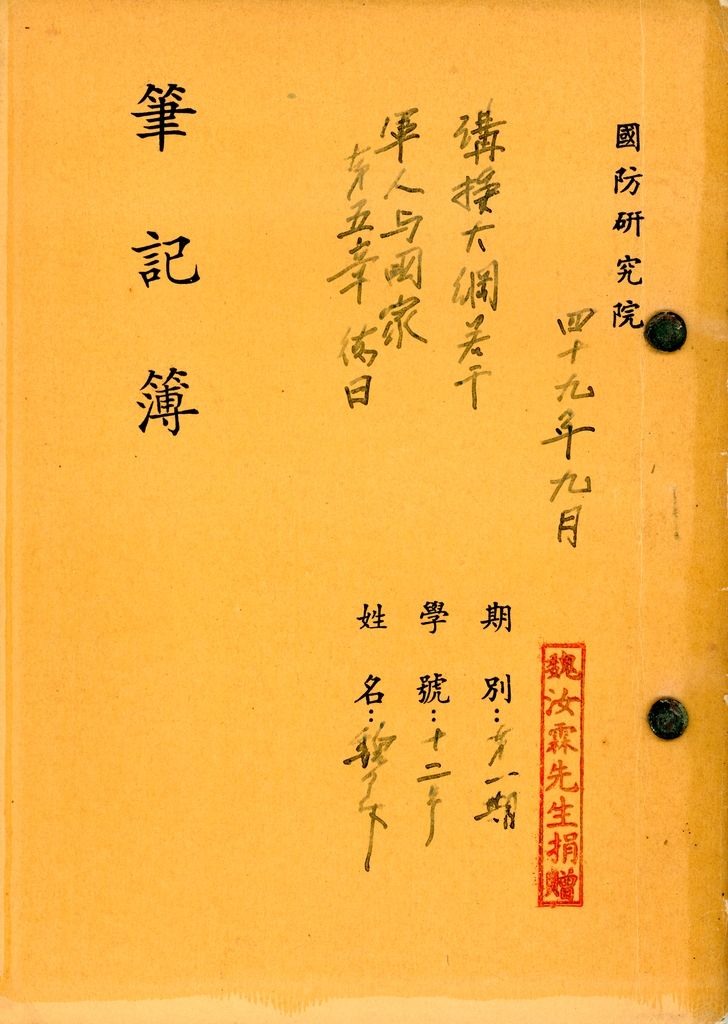 國防研究院
四十九年九月
講授大綱若干
軍人与國家
第五章 待日
筆記簿
期別:第一期
學號:十二号
姓名:魏汝霖
魏汝霖先生捐贈